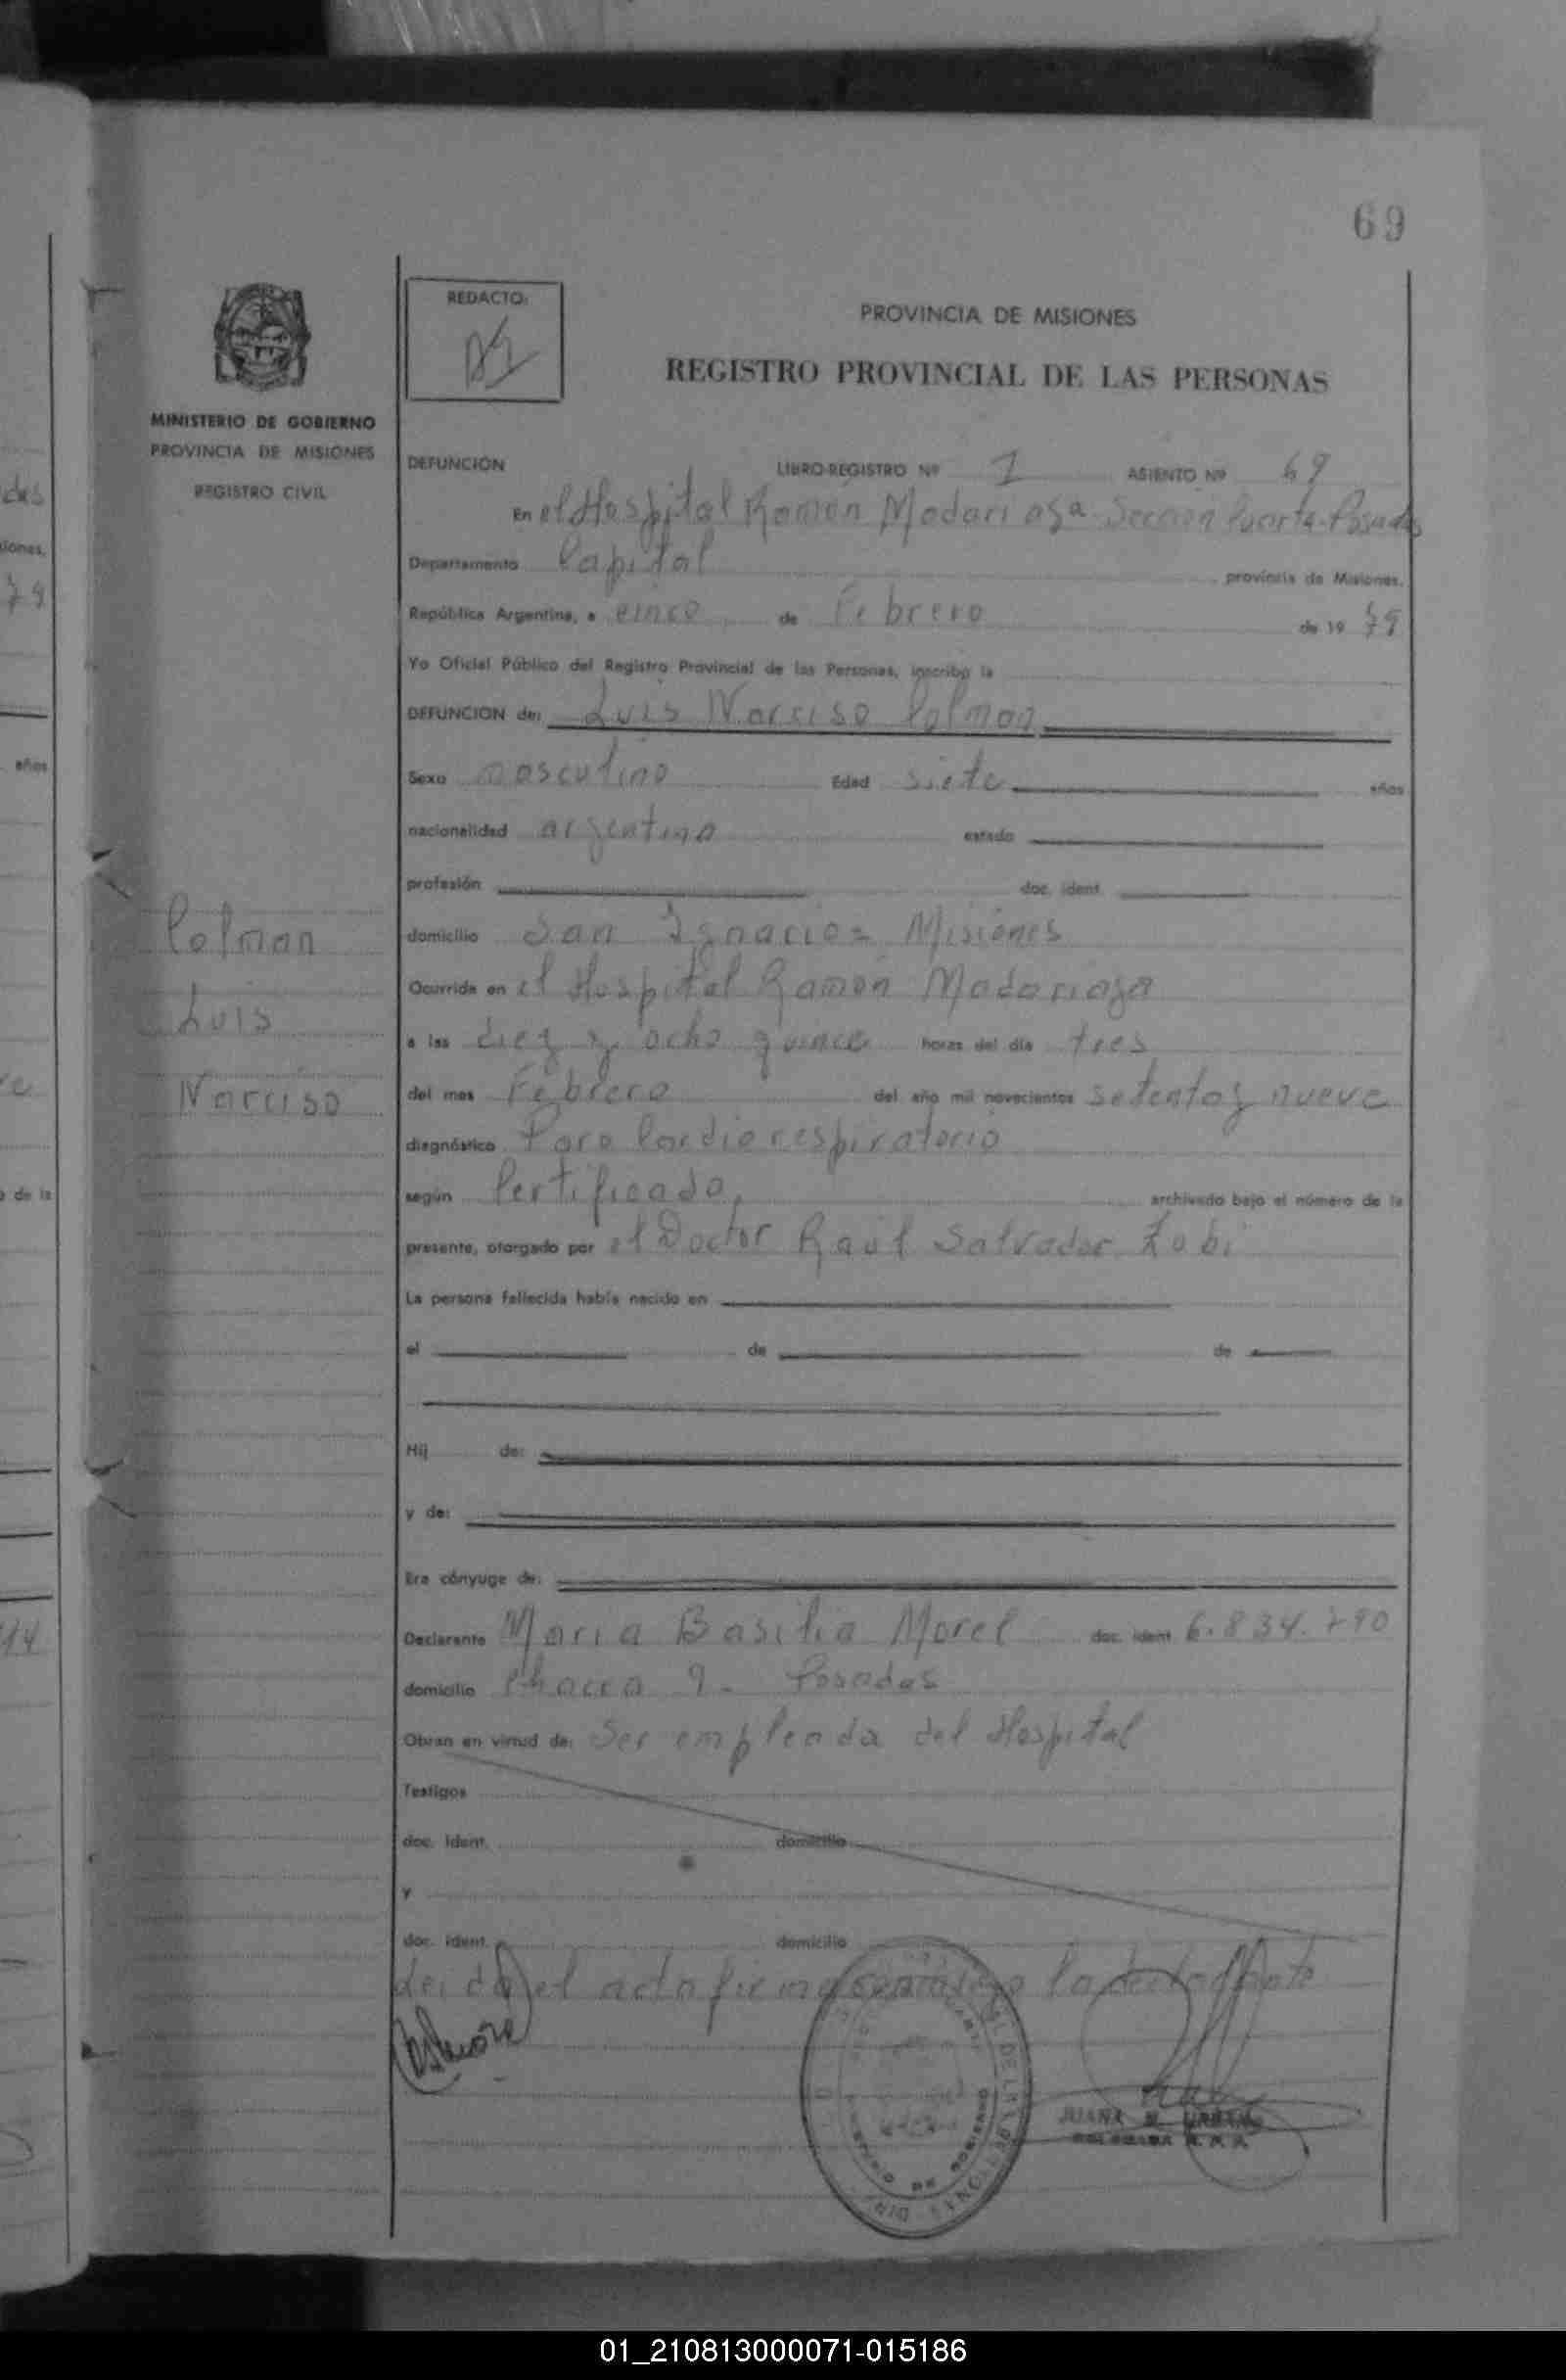 69
REDACTO:
PROVINCIA DE MISIONES
REGISTRO PROVINCIAL DE LAS PERSONAS
MINISTERIO DE GOBIERNO
PROVINCIA DE MISIONES
REGISTRO CIVIL
DEFUNCION LIBRO-REGISTRO Nº 1 ASIENTO Nº 69
En el Hospital Ramón Madariaga Sección Cuarta-Posadas
Departamento Capital provincia de Misiones.
República Argentina, a cinco de Febrero de 19 79
Yo Oficial Público del Registro Provincial de las Personas, inscribo la
DEFUNCION de: Luis Narciso Colman
Sexo masculino Edad siete años
nacionalidad argentina estado
profesión doc. ident.
domicilio San Ignacio = Misiones
Ocurrida en el Hospital Ramón Madariaga
a las diez y ocho quince horas del día tres
del mes Febrero del año mil novecientos setenta y nueve
diagnóstico Paro Cardiorespiratorio
según Certificado, archivado bajo el número de la
presente, otorgado por el Doctor Raúl Salvador Zubi
La persona fallecida había nacido en
el de de
Hij de:
y de:
Era cónyuge de:
Declarante María Basilia Morel doc. ident 6.834.790
domicilio Chacra 9- Posadas
Obran en virtud de: Ser empleada del Hospital
Testigos
doc. ident. domicilio
y
doc. ident. domicilio
Leida el acta firma conmigo la declarante
Colman
Luis
Narciso
JUANA
01_210813000071-015186